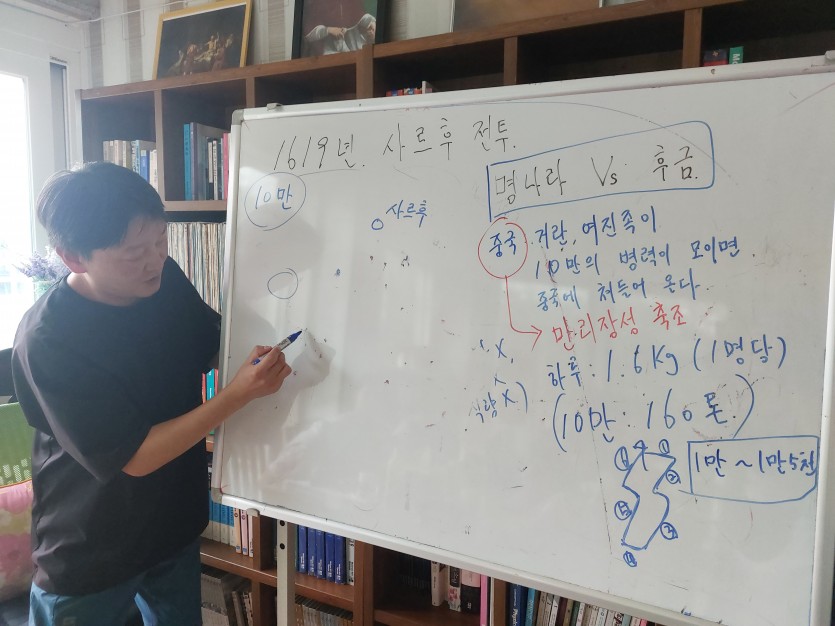 1619년. 사르후 전투.
10만
사르후
명나라 Vs 후금.
중국 거란, 여진족이
10만의 병력이 모이면
중국에 처들어 온다.
만리장성 축조
X,
식량 X)
하루 : 1.6 Kg (1명 당)
(10만 : 160 톤.)
1만 ~ 1만5천